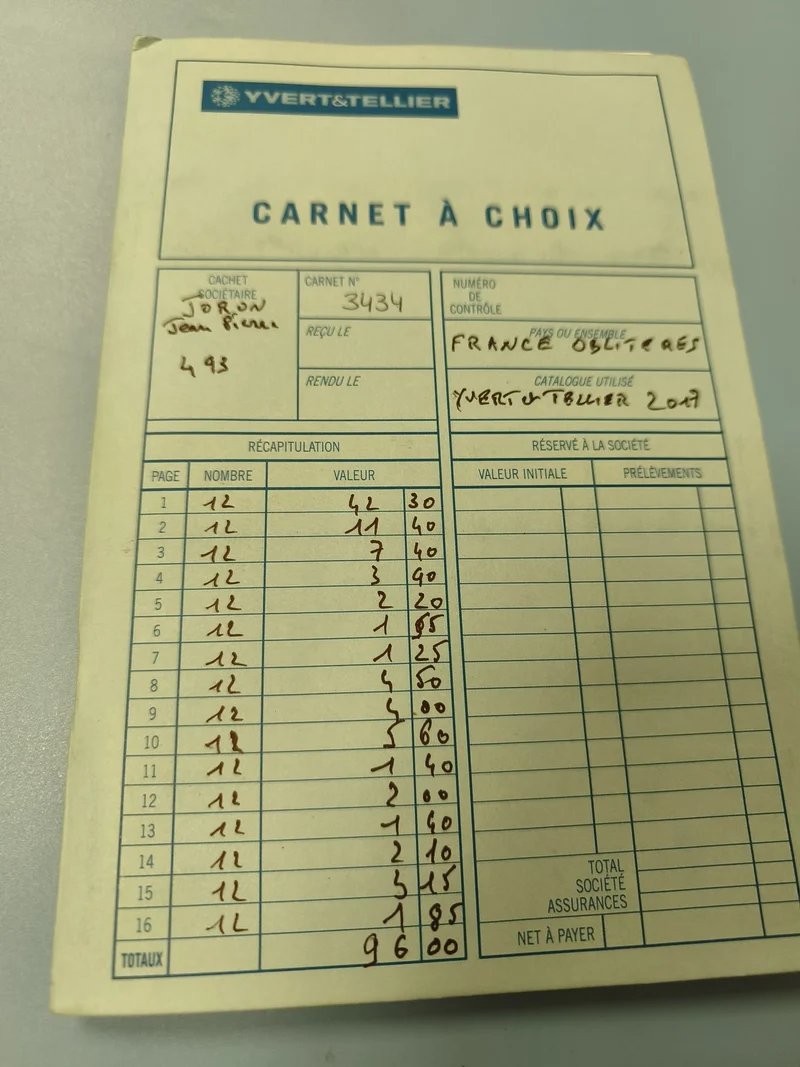 YVERT&TELLIER
CARNET À CHOIX
CACHET
SOCIÉTAIRE
JORON
Jean Pierre
493
CARNET N° 3434
REÇU LE
RENDU LE
NUMÉRO
DE
CONTRÔLE
PAYS OU ENSEMBLE
FRANCE OBLITERES
CATALOGUE UTILISÉ
YVERT & TELLIER 2017
RÉCAPITULATION
PAGE NOMBRE VALEUR
1 12 42 30
2 12 11 40
3 12 7 40
4 12 3 90
5 12 2 20
6 12 1 55
7 12 1 25
8 12 4 50
9 12 4 00
10 12 5 60
11 12 1 40
12 12 2 00
13 12 1 40
14 12 2 10
15 12 3 15
16 12 1 85
TOTAUX 96 00
RÉSERVÉ À LA SOCIÉTÉ
VALEUR INITIALE PRÉLÈVEMENTS
TOTAL
SOCIÉTÉ
ASSURANCES
NET À PAYER